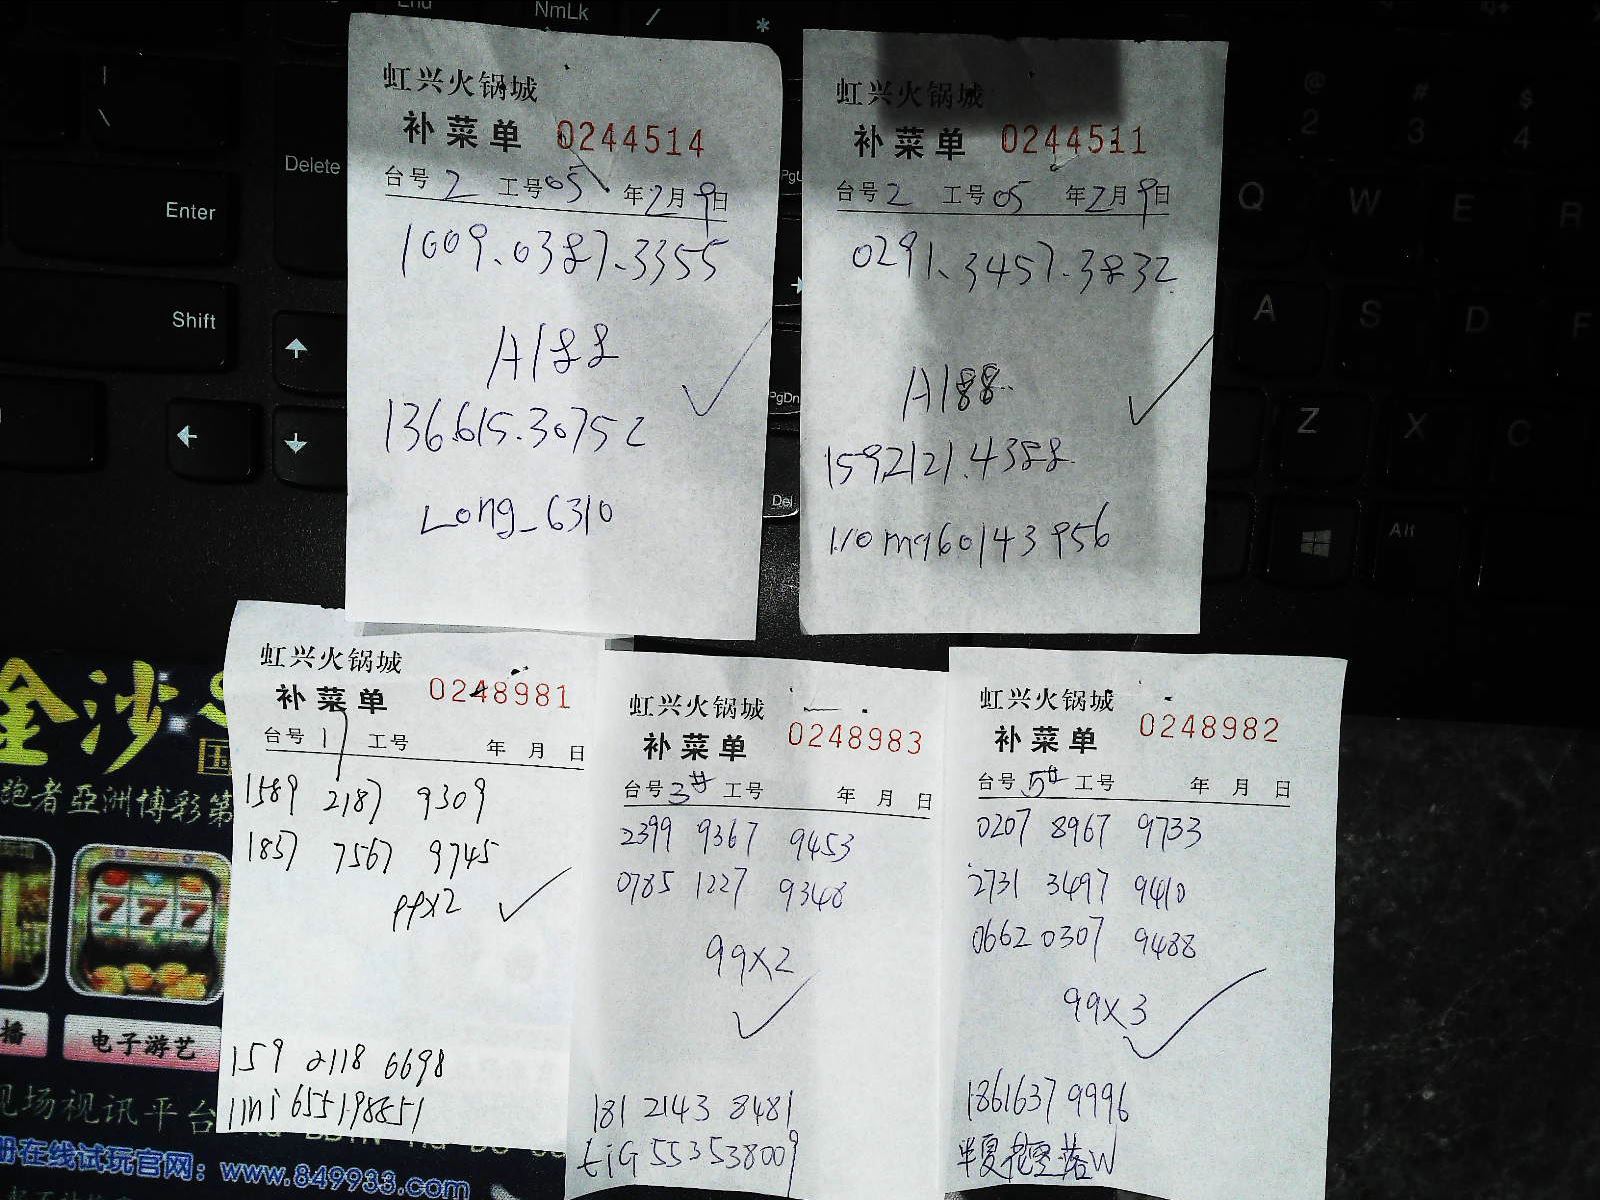 End
NmLk
/
*
|
\
Delete
Enter
Shift
PgUp
PgDn
Del
@
2
#
3
$
4
Q W E R
A S D F
Z X C
Alt
虹兴火锅城
补菜单 0244514
台号 2 工号 05 年 2 月 9 日
1009.0387.3355
A188
136.615.30752
Long_6310
虹兴火锅城
补菜单 0244511
台号 2 工号 05 年 2 月 9 日
0291、3457.3832
A188
159.2121.4388
虹兴火锅城
补菜单 0248981
台号 17 工号 年 月 日
1589 2187 9309
1857 7567 9745
PPX2
159 2118 6698
虹兴火锅城
补菜单 0248983
台号 3# 工号 年 月 日
2399 9367 9453
0785 1227 9348
99X2
181 2143 8481
tiG 553538009
虹兴火锅城
补菜单 0248982
台号 5# 工号 年 月 日
0207 8967 9733
2731 3497 9410
0662 0307 9488
99X3
18616379996
金沙
国
跑者亞洲博彩第
777
播
电子游艺
现场视讯平台
册在线试玩官网：www.849933.com